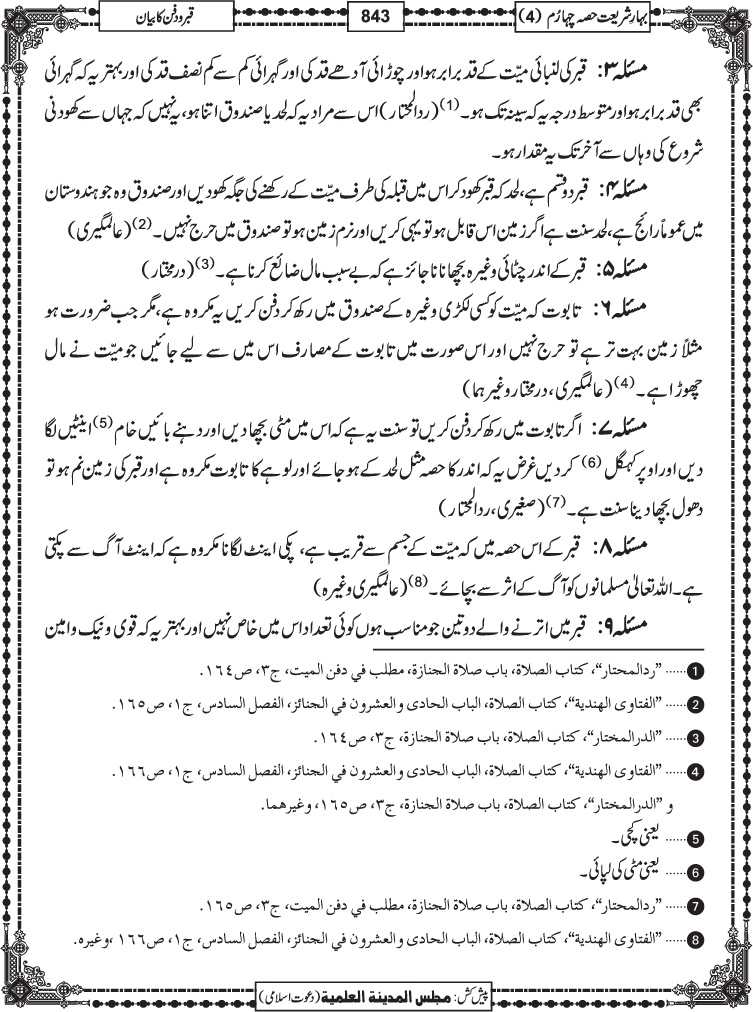 بہارِ شریعت حصہ چہارم (4)
843
قبر و دفن کا بیان
مسئلہ ۳: قبر کی لنبائی میّت کے قد برابر ہو اور چوڑائی آدھے قد کی اور گہرائی کم سے کم نصف قد کی اور بہتر یہ کہ گہرائی
بھی قد برابر ہو اور متوسط درجہ یہ کہ سینہ تک ہو۔(1) (ردالمحتار) اس سے مراد یہ کہ لحد یا صندوق اتنا ہو، یہ نہیں کہ جہاں سے کھودنی
شروع کی وہاں سے آخر تک یہ مقدار ہو۔
مسئلہ ۴: قبر دو قسم ہے، لحد کہ قبر کھود کر اس میں قبلہ کی طرف میّت کے رکھنے کی جگہ کھودیں اور صندوق وہ جو ہندوستان
میں عموماً رائج ہے، لحد سنت ہے اگر زمین اس قابل ہو تو یہی کریں اور نرم زمین ہو تو صندوق میں حرج نہیں۔(2) (عالمگیری)
مسئلہ ۵: قبر کے اندر چٹائی وغیرہ بچھانا ناجائز ہے کہ بے سبب مال ضائع کرنا ہے۔(3) (درمختار)
مسئلہ ۶: تابوت کہ میّت کو کسی لکڑی وغیرہ کے صندوق میں رکھ کر دفن کریں یہ مکروہ ہے، مگر جب ضرورت ہو
مثلاً زمین بہت تر ہے تو حرج نہیں اور اس صورت میں تابوت کے مصارف اس میں سے لیے جائیں جو میّت نے مال
چھوڑا ہے۔(4) (عالمگیری، درمختار وغیرہما)
مسئلہ ۷: اگر تابوت میں رکھ کر دفن کریں تو سنت یہ ہے کہ اس میں مٹی بچھا دیں اور دہنے بائیں خام(5) اینٹیں لگا
دیں اور اوپر کہگل(6) کر دیں غرض یہ کہ اندر کا حصہ مثل لحد کے ہو جائے اور لوہے کا تابوت مکروہ ہے اور قبر کی زمین نم ہو تو
دھول بچھا دینا سنت ہے۔(7) (صغیری، ردالمحتار)
مسئلہ ۸: قبر کے اس حصہ میں کہ میّت کے جسم سے قریب ہے، پکی اینٹ لگانا مکروہ ہے کہ اینٹ آگ سے پکتی
ہے۔ اللہ تعالیٰ مسلمانوں کو آگ کے اثر سے بچائے۔(8) (عالمگیری وغیرہ)
مسئلہ ۹: قبر میں اترنے والے دو تین جو مناسب ہوں کوئی تعداد اس میں خاص نہیں اور بہتر یہ کہ قوی و نیک و امین
1 ...... ”ردالمحتار“، کتاب الصلاۃ، باب صلاۃ الجنازۃ، مطلب في دفن المیت، ج۳، ص۱٦٤.
2 ...... ”الفتاوی الھندیۃ“، کتاب الصلاۃ، الباب الحادی والعشرون في الجنائز، الفصل السادس، ج۱، ص۱٦٥.
3 ...... ”الدرالمختار“، کتاب الصلاۃ، باب صلاۃ الجنازۃ، ج۳، ص۱٦٤.
4 ...... ”الفتاوی الھندیۃ“، کتاب الصلاۃ، الباب الحادی والعشرون في الجنائز، الفصل السادس، ج۱، ص۱٦٦.
و ”الدرالمختار“، کتاب الصلاۃ، باب صلاۃ الجنازۃ، ج۳، ص۱٦٥، وغیرھما.
5 ...... یعنی کچی۔
6 ...... یعنی مٹی کی لپائی۔
7 ...... ”ردالمحتار“، کتاب الصلاۃ، باب صلاۃ الجنازۃ، مطلب في دفن المیت، ج۳، ص۱٦٥.
8 ...... ”الفتاوی الھندیۃ“، کتاب الصلاۃ، الباب الحادی والعشرون في الجنائز، الفصل السادس، ج۱، ص۱٦٦ ،وغیرہ.
پیش کش: مجلس المدینة العلمیة (دعوتِ اسلامی)